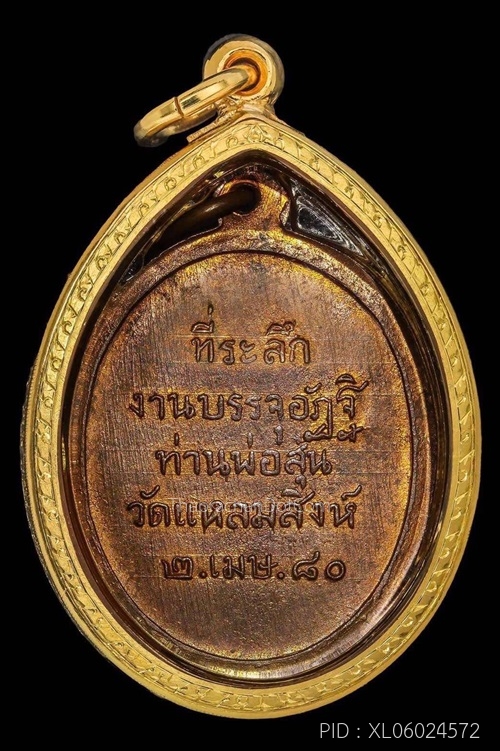 ที่ระลึก
งานบรรจุอัฏฐิ
ท่านพ่อสุ่น
วัดแหลมสิงห์
๒.เมษ.๘๐
PID : XL06024572